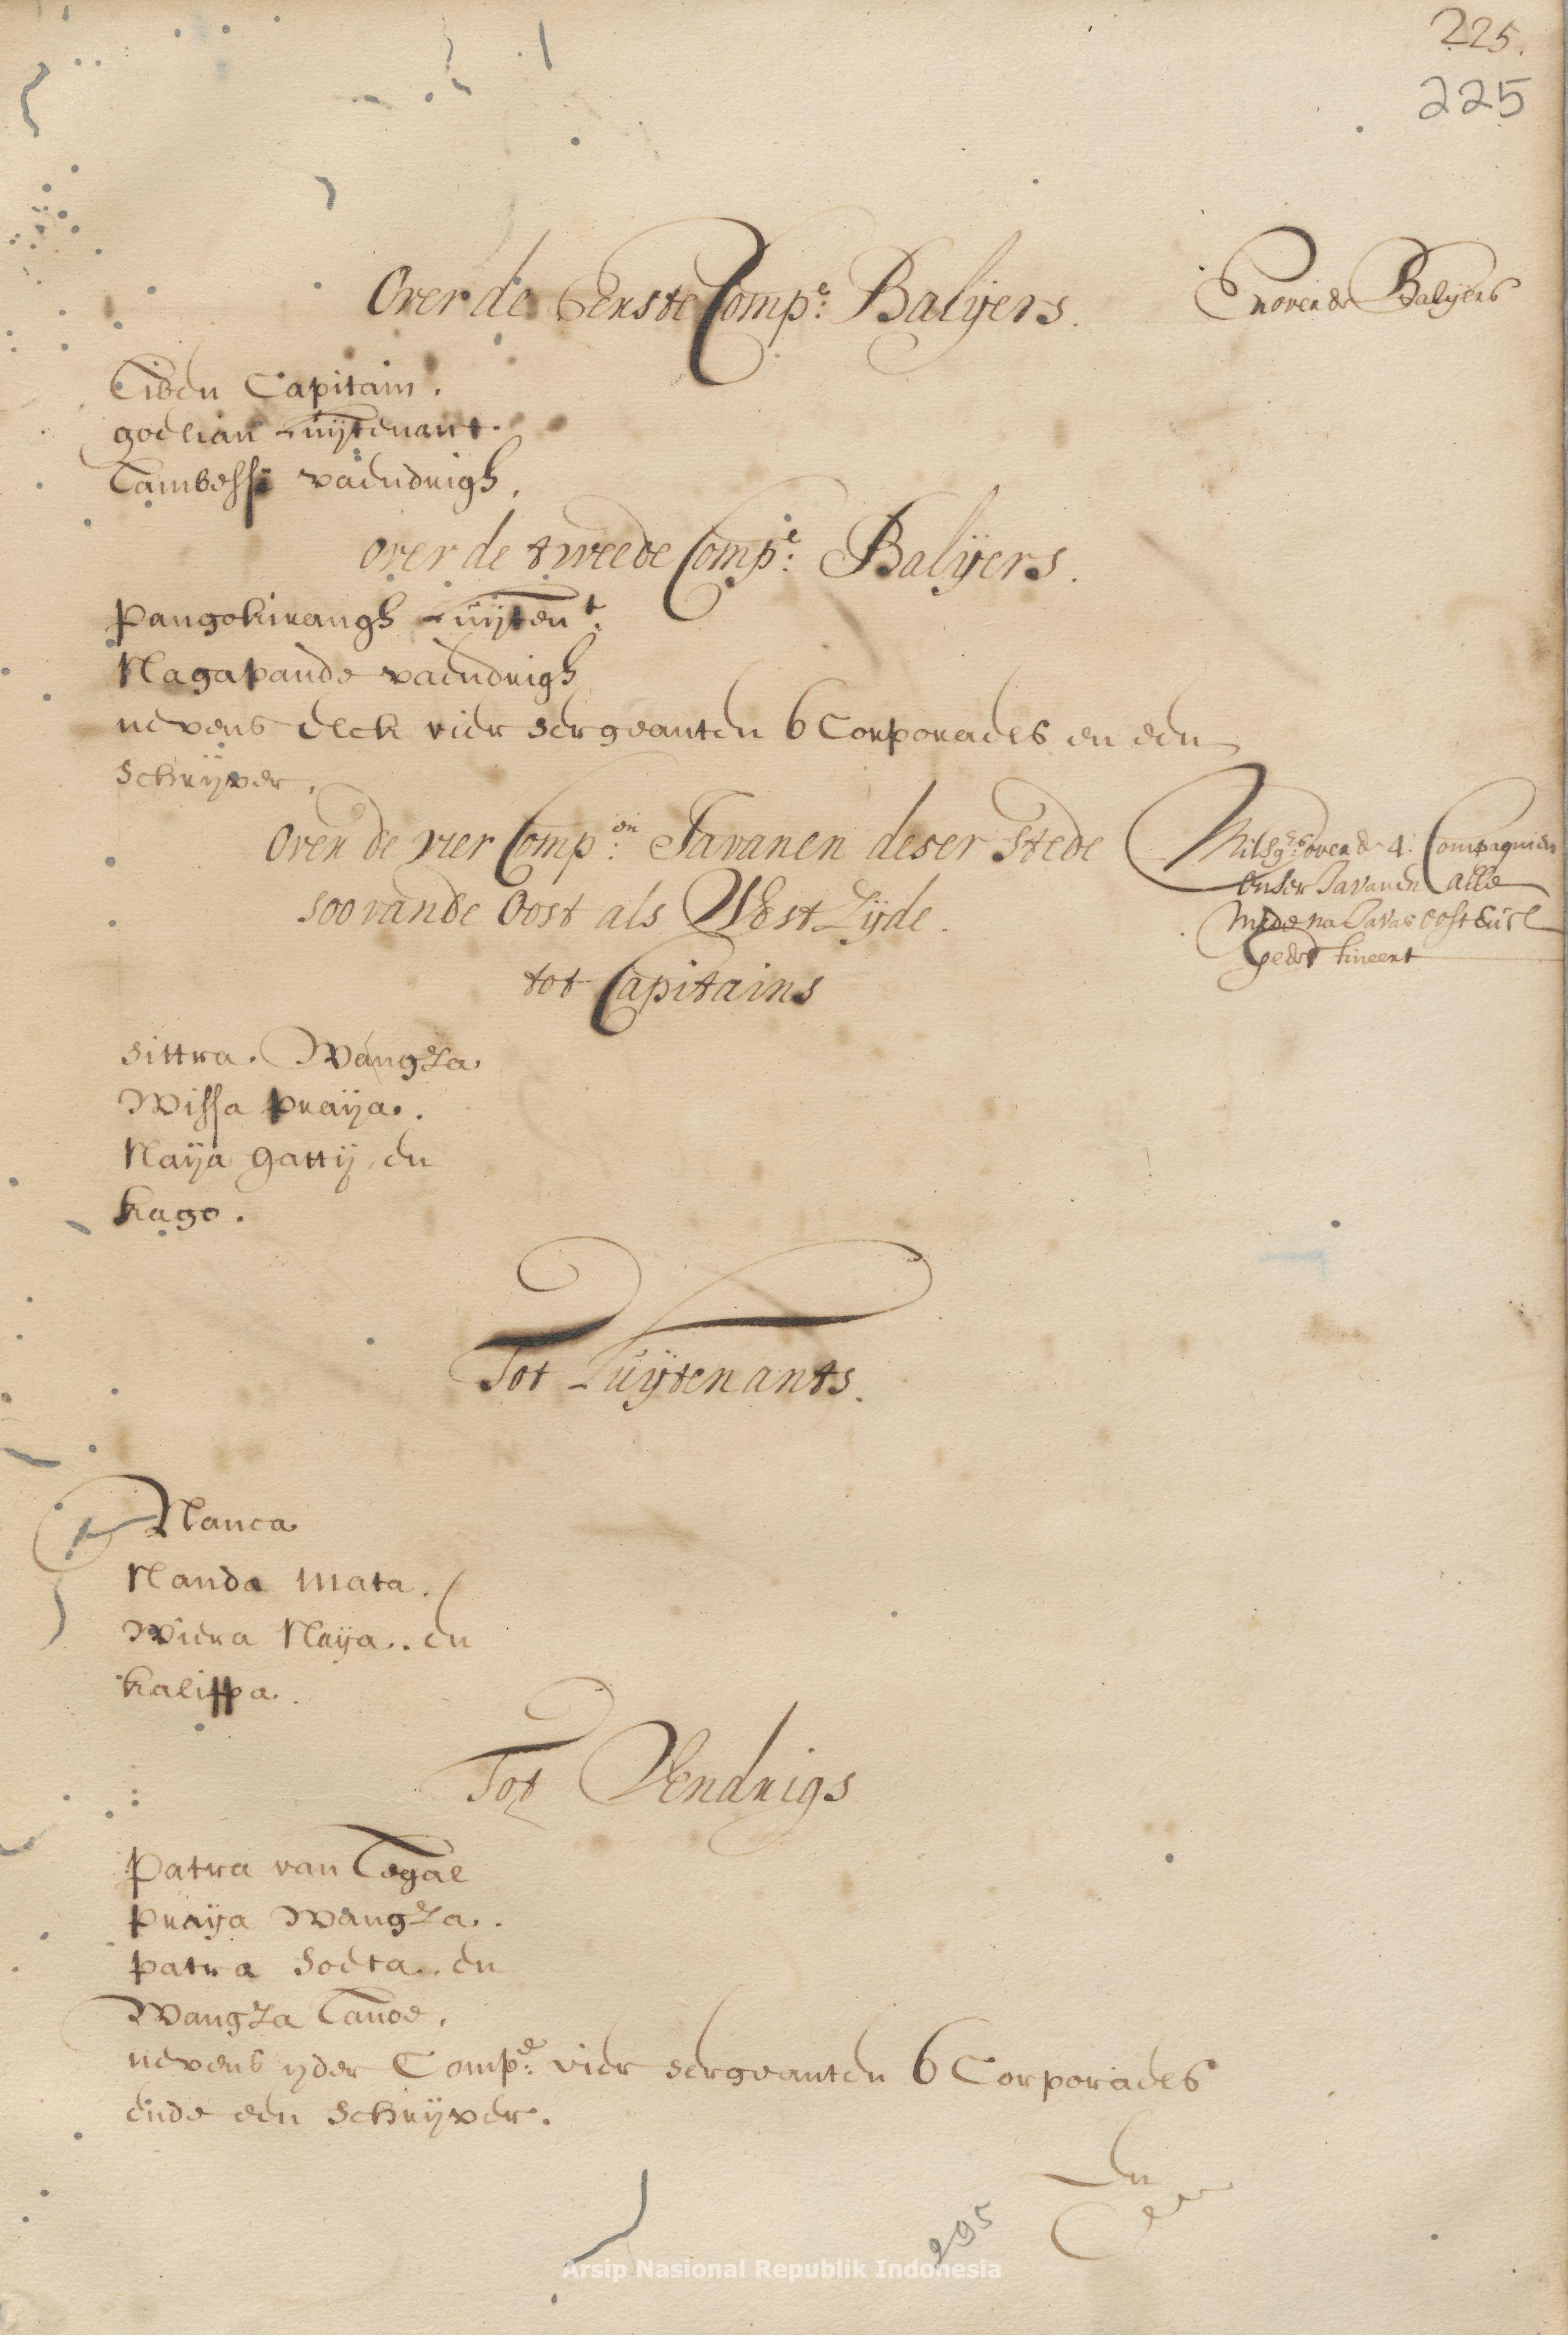 225.
225
Over de Eerste Compe: Balijers.
En over de Balijers
Tiben Capitain.
goelian Luijtenant.
Tambessij vaendrigh,
over de tweede Compe: Balijers.
Pangokirangh Luijtent:
Nagapande vaendrigh
nevens elck vier sergeanten 6 Corporaels en een
schrijver,
Over de vier Compen: Javanen deser stede
soo van de Oost als West Zijde.
over de 4: Compagnien
onser Javanen alle
mede na Javas oost
tot Capitains
Sittra Wangza
Wissa praija.
Naija gattij, en
kago.
Tot Luijtenants.
Nanca
Nanda Mata.
Wiera Naija. en
kalippa.
Tot Vendrigs
Patra van Tegal
praija Wangza.
patra Soeta. en
Wangza Tanoe.
nevens ijder Compe: vier sergeanten 6 Corporaels
ende een schrijver.
En
295
Arsip Nasional Republik Indonesia